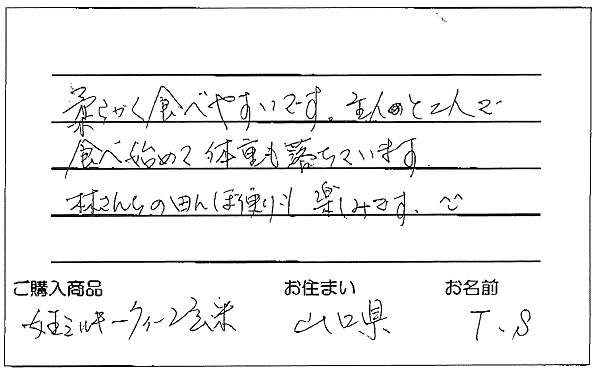 柔らかく食べやすいです。主人と二人で
食べ始めて体重も落ちています
林さんちの田んぼ便りも楽しみです。
ご購入商品 お住まい お名前
ミルキークイーン玄米 山口県 T.S